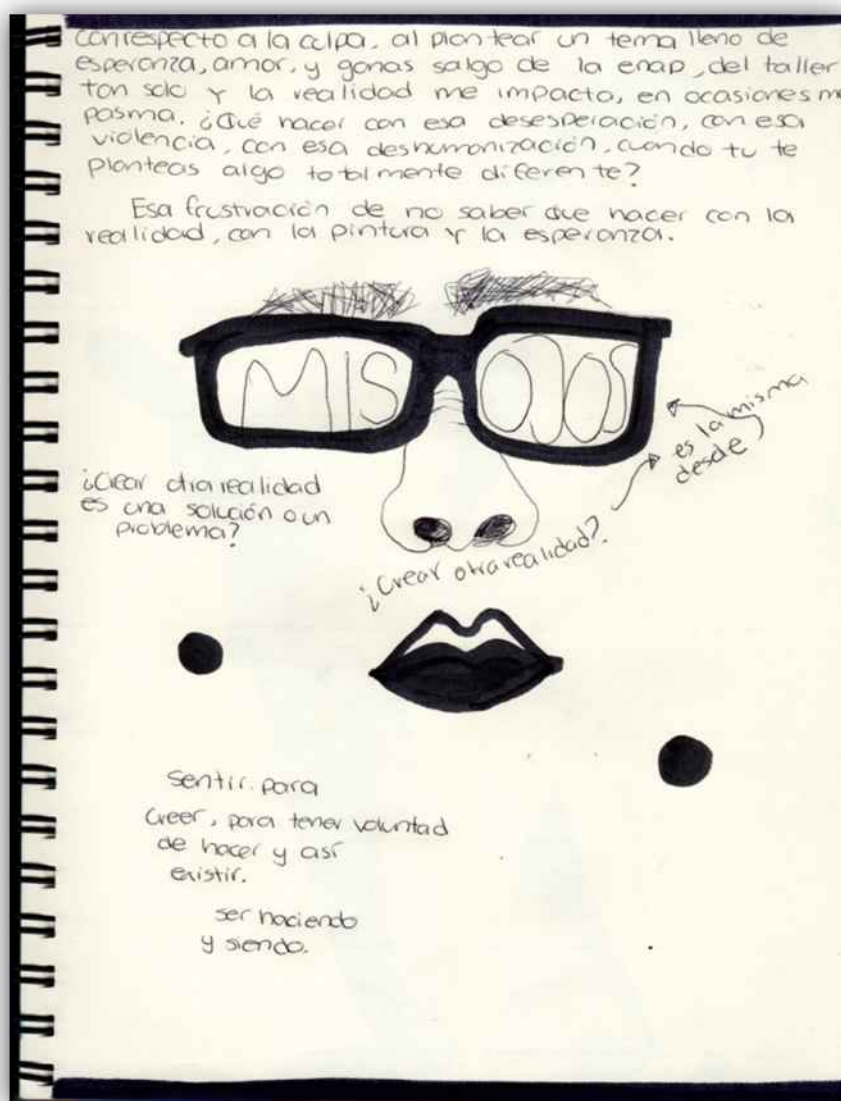 con respecto a la culpa. al plantear un tema lleno de
esperanza, amor, y ganas salgo de la enap, del taller
tan solo y la realidad me impacta, en ocasiones me
pasma. ¿Qué hacer con esa desesperación, con esa
violencia, con esa deshumanización, cuando tu te
planteas algo totalmente diferente?
Esa frustración de no saber que hacer con la
realidad, con la pintura y la esperanza.
MIS OJOS
es la misma
desde
¿Crear otra realidad
es una solución o un
problema?
¿Crear otra realidad?
Sentir. para
Creer, para tener voluntad
de hacer y así
existir.
ser haciendo
y siendo.